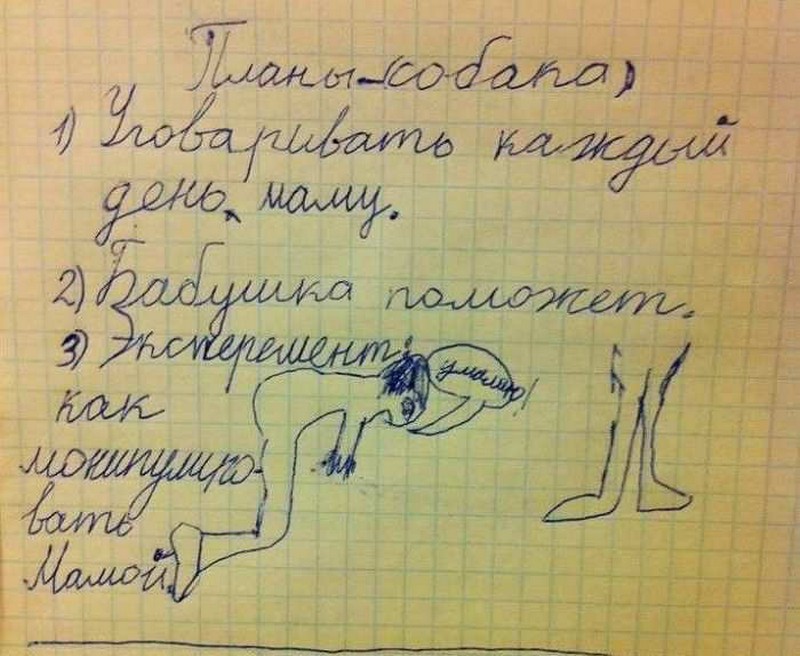 Планы-собака,
1) Уговаривать каждый
день маму.
2) Бабушка поможет.
3) Эксперемент:
умаляю!
как
монипулиро-
вать
Мамой.